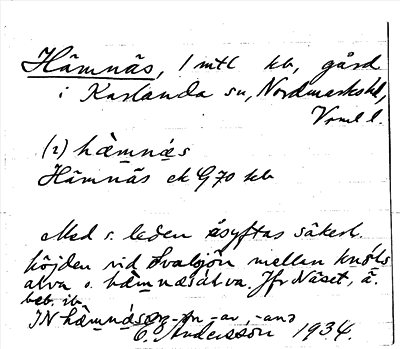 Hämnäs, 1 mtl kb, gård
i Karlanda sn, Nordmarks hd,
Vrml l.
(2) hä̀mnä̀s
Hämnäs ek G 70 kb
Med s. leden åsyftas säkerl.
höjden vid Svalsjön mellan
älva o. hämnäsälva. Jfr Näset, ä.
beb. ib.
IN hämnäsɔ -n -ar, -anɔ
E. Andersson 1934.